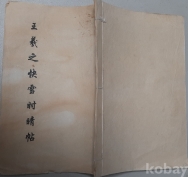 王羲之快雪时晴帖
kobay